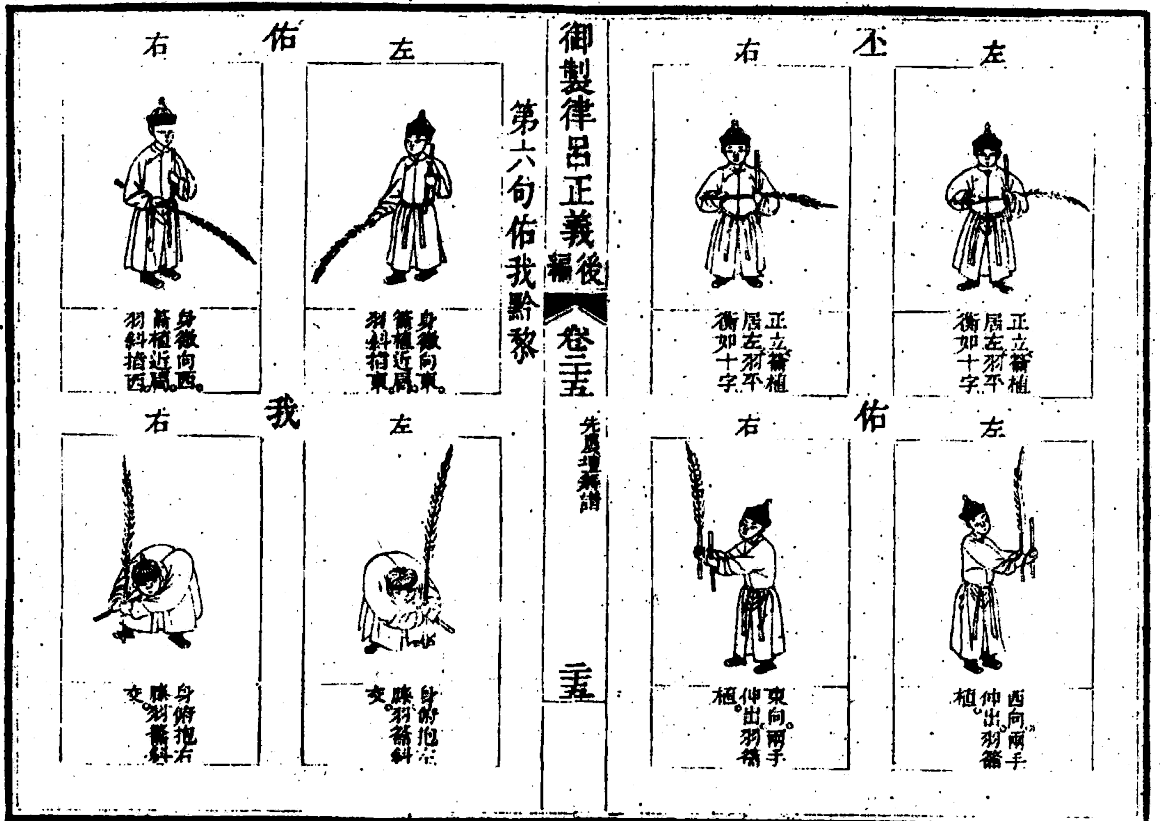 丕
左
正立籥植
居左羽平
衡如十字
右
正立籥植
居左羽平
衡如十字
佑
左
西向兩手
伸出羽籥
植。
右
東向。兩手
伸出羽籥
植。
御製律呂正義後編
卷三十五
先農壇舞譜
三十五
第六句佑我黔黎
佑
左
身微向東。
籥植近肩。
羽斜指東。
右
身微向西。
籥植近肩。
羽斜指西。
我
左
身俯抱左
膝羽籥斜
交。
右
身俯抱右
膝羽籥斜
交。